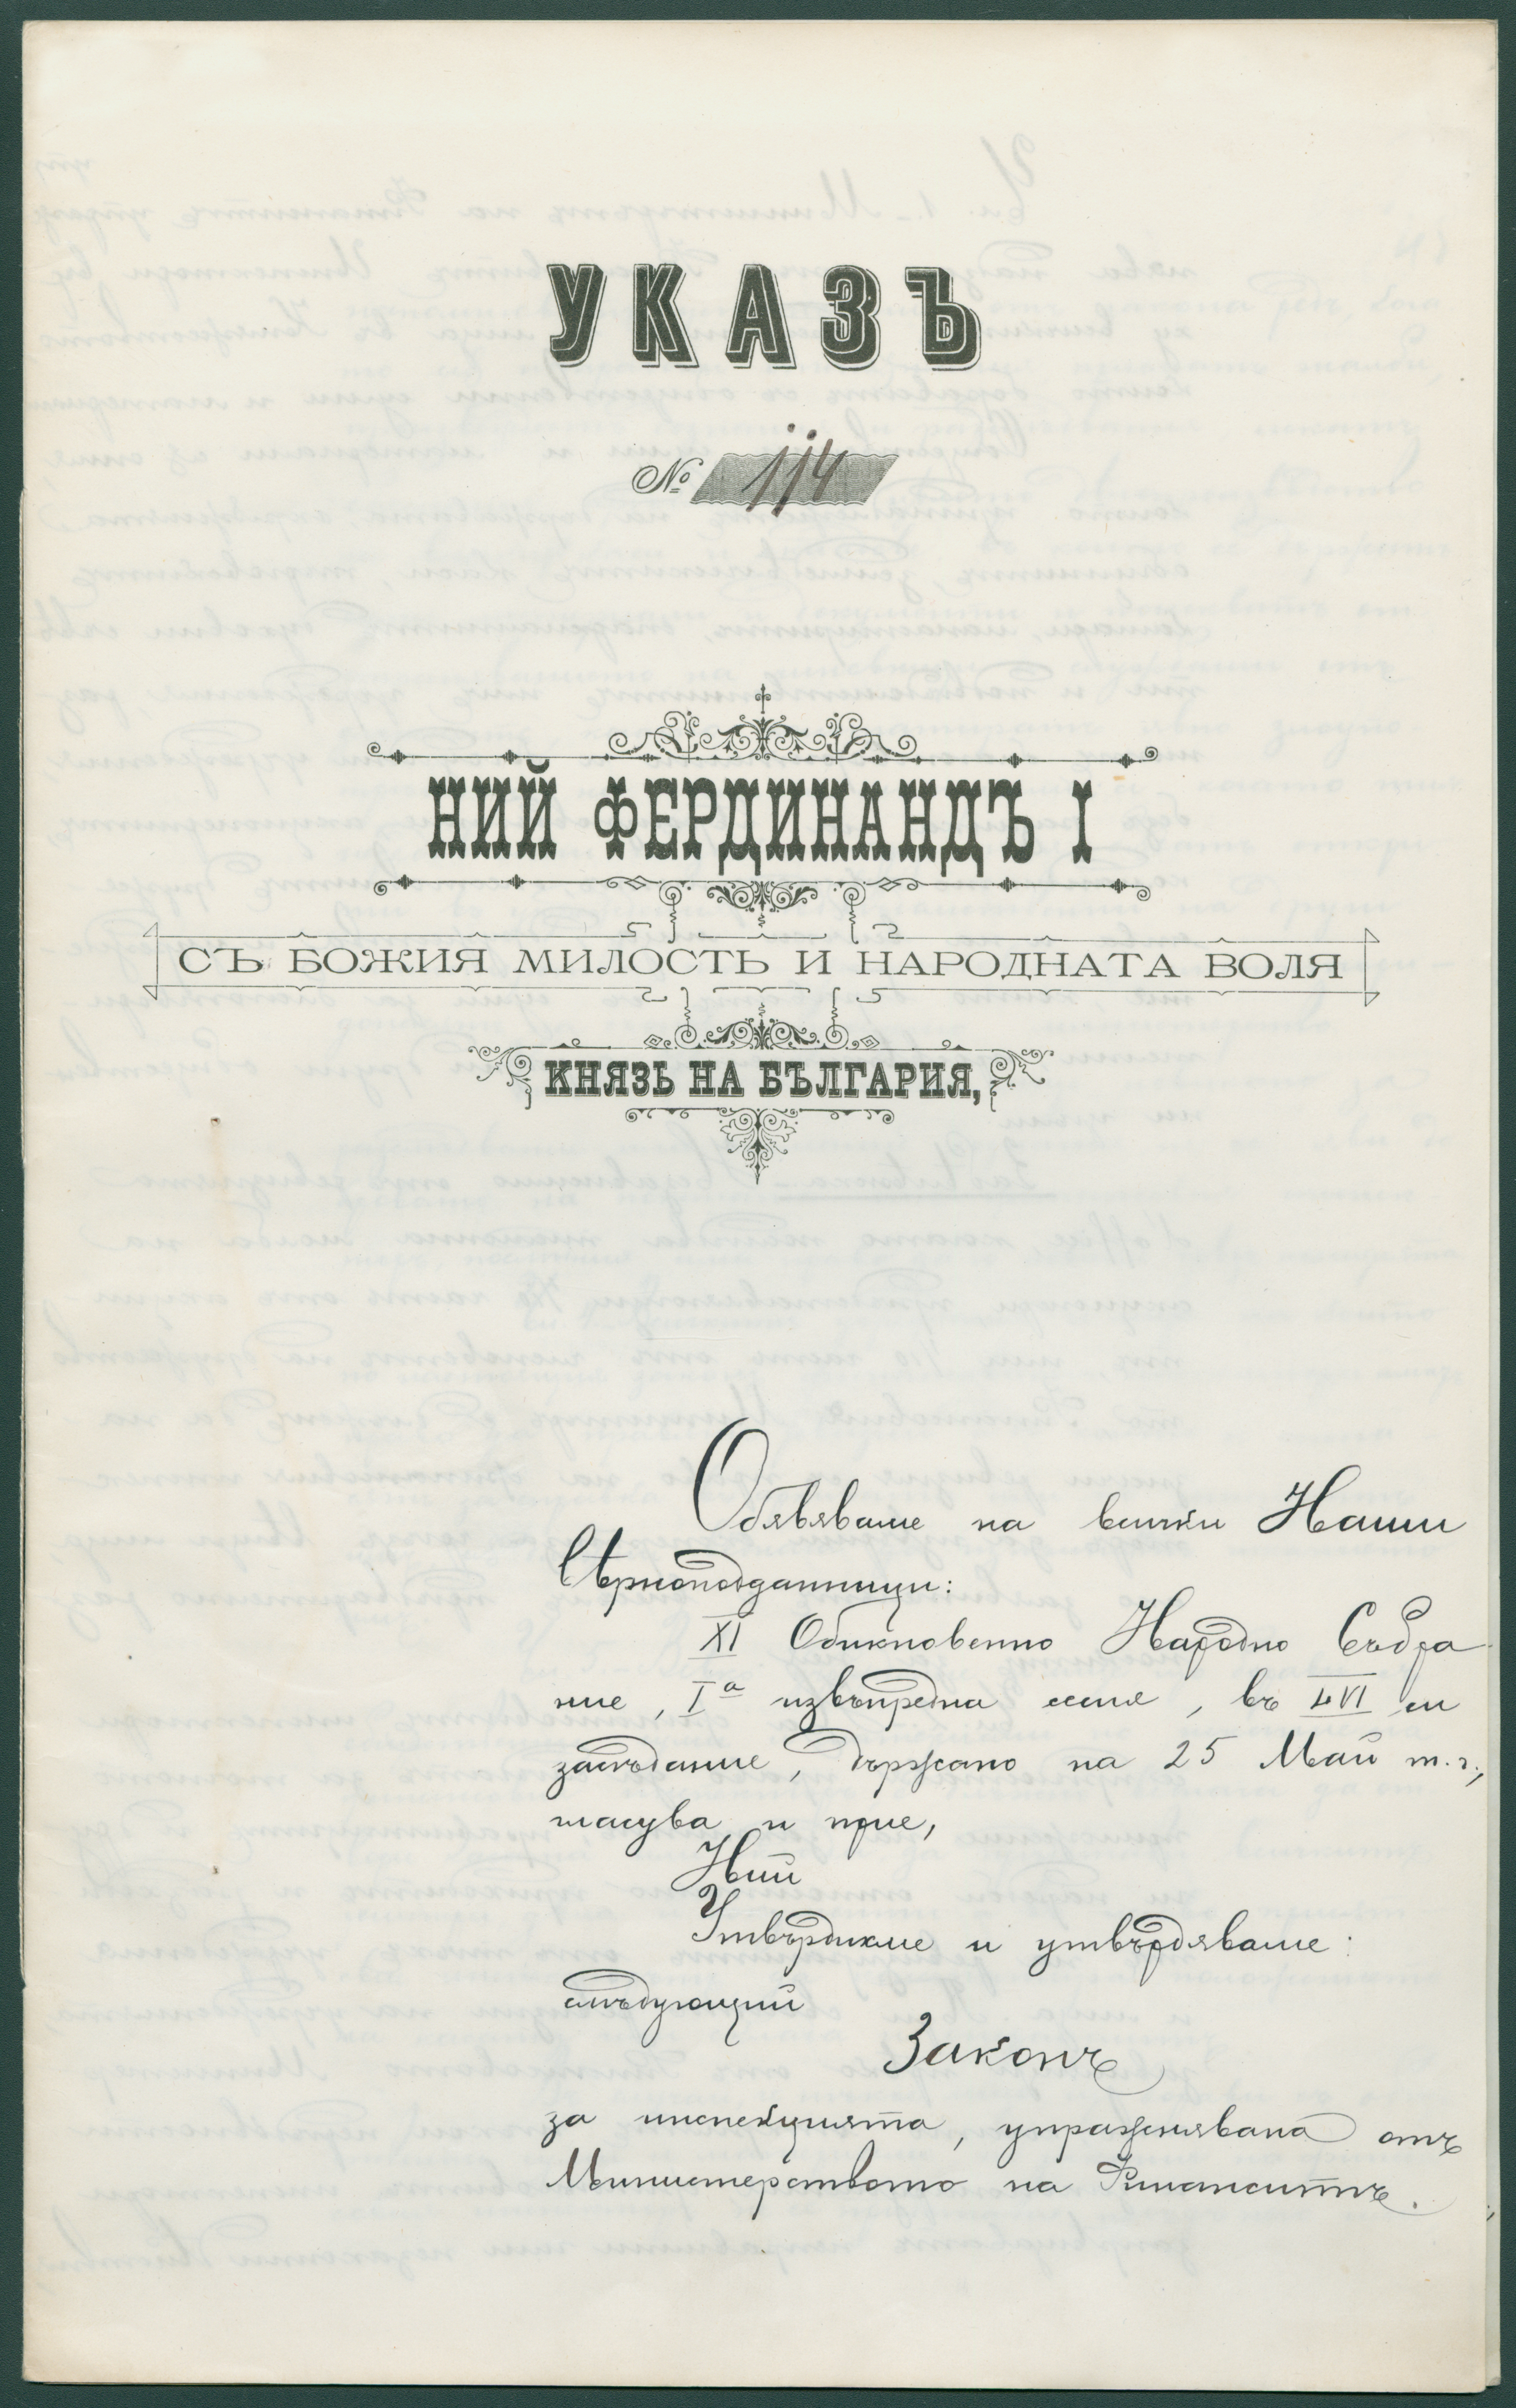 УКАЗЪ
№ 114
НИЙ ФЕРДИНАНДЪ I
СЪ БОЖИЯ МИЛОСТЬ И НАРОДНАТА ВОЛЯ
КНЯЗЬ НА БЪЛГАРИЯ,
Обявяваме на всички Наши
вѣрноподданници:
XI Обикновенно Народно Събра
ние, Iа извънредна сесия, въ LVI си
засѣдание, държано на 25 Май т. г.,
гласува и прие,
Ний
Утвърдихме и утвърдяваме:
слѣдующий
Законъ
за инспекцията, упражнявана отъ
Министерството на Финанситѣ.